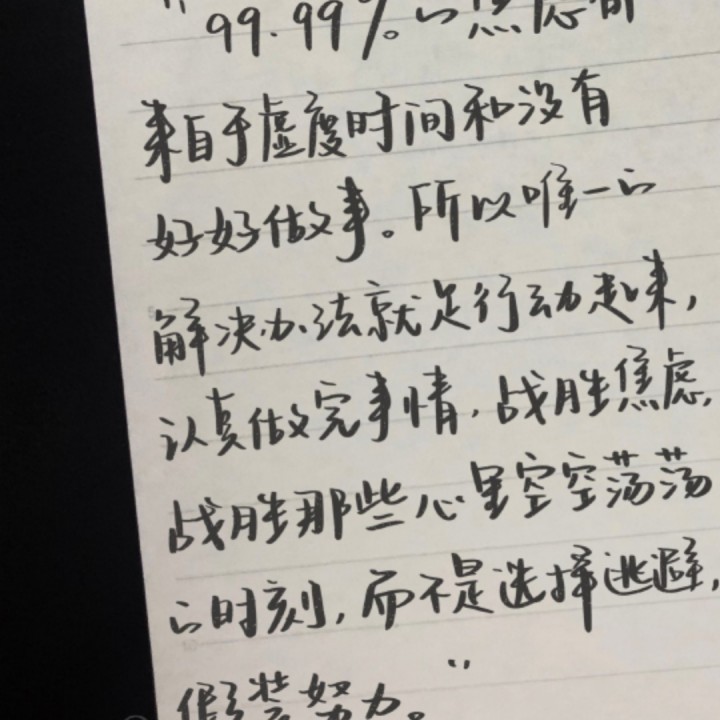 "99.99%的焦虑都
来自于虚度时间和没有
好好做事。所以唯一的
解决办法就是行动起来,
认真做完事情,战胜焦虑,
战胜那些心里空空荡荡
的时刻,而不是选择逃避,
假装努力。"